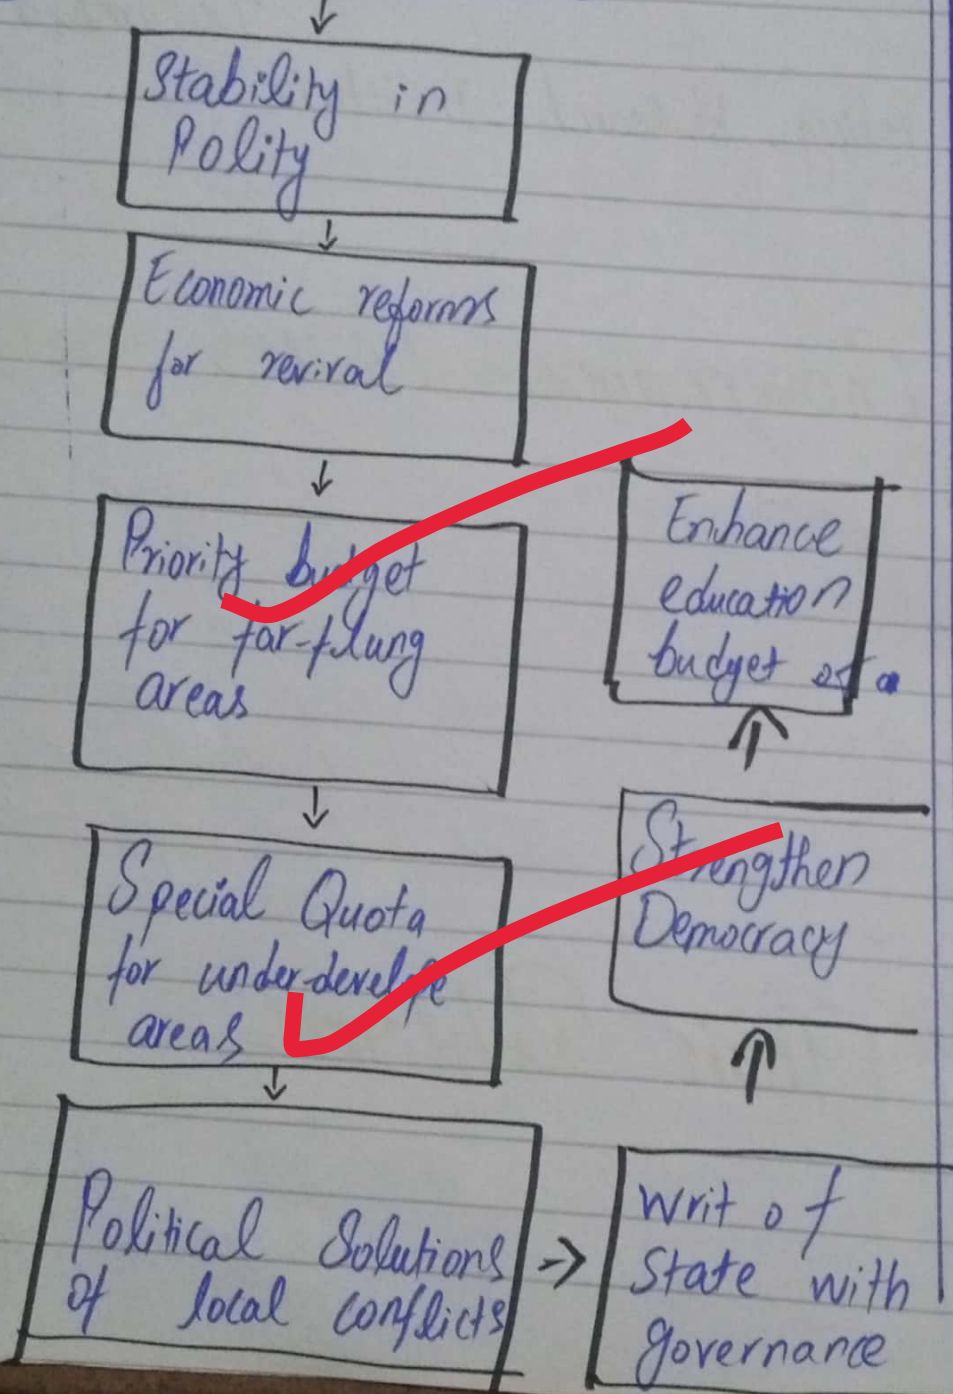 Stability in
Polity
Economic reforms
for revival
Priority budget
for far-flung
areas
Special Quota
for under-develpe
areas
Political Solutions
of local conflicts
Writ of
State with
governance
Strengthen
Democracy
Enhance
education
budget